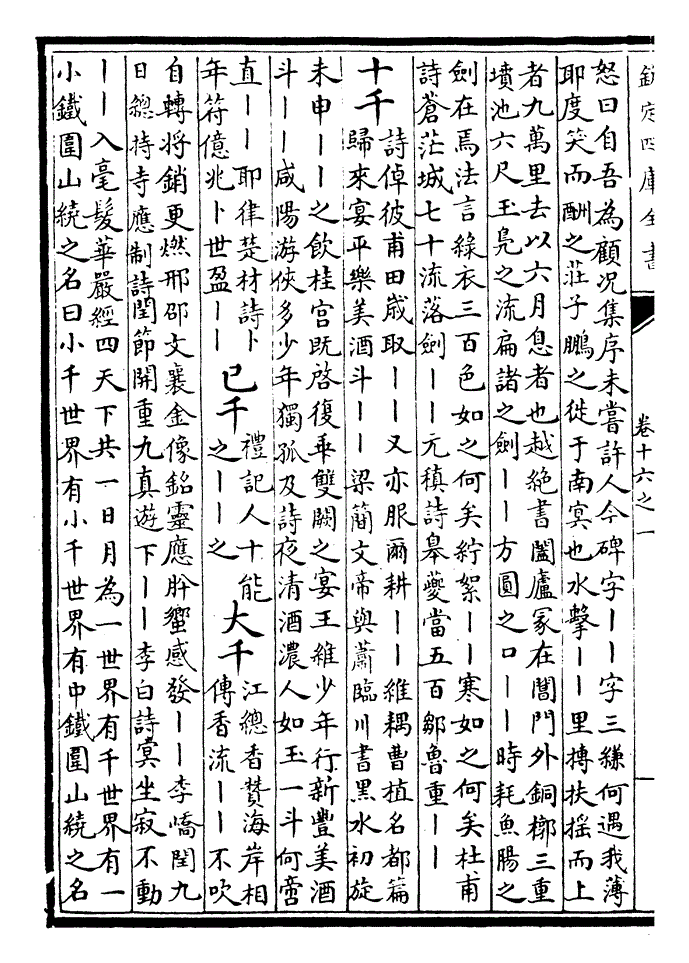 欽定四庫全書
卷十六之一
怒曰自吾為顧况集序未嘗許人今碑字｜｜字三縑何遇我薄
耶度笑而酬之莊子鵬之徙于南冥也水擊｜｜里摶扶摇而上
者九萬里去以六月息者也越絶書闔廬冡在閶門外銅槨三重
墳池六尺玉鳧之流扁諸之劍｜｜方圓之口｜｜時耗魚腸之
劍在焉法言綠衣三百色如之何矣紵絮｜｜寒如之何矣杜甫
詩蒼茫城七十流落劍｜｜元稹詩皋夔當五百鄒魯重｜｜
十千
詩倬彼甫田嵗取｜｜又亦服爾耕｜｜維耦曹植名都篇
歸來宴平樂美酒斗｜｜梁簡文帝與蕭臨川書黑水初旋
未申｜｜之飲桂宫既啓復乖雙闕之宴王維少年行新豐美酒
斗｜｜咸陽游俠多少年獨孤及詩夜清酒濃人如玉一斗何啻
直｜｜耶律楚材詩卜
年符億兆卜世盈｜｜
已千
禮記人十能
之｜｜之
大千
江總香贊海岸相
傳香流｜｜不吹
自轉将銷更燃邢邵文襄金像銘靈應肸蠁感發｜｜李嶠閏九
日總持寺應制詩閏節開重九真遊下｜｜李白詩冥坐寂不動
｜｜入毫髮華嚴經四天下共一日月為一世界有千世界有一
小鐵圍山繞之名曰小千世界有小千世界有中鐵圍山繞之名